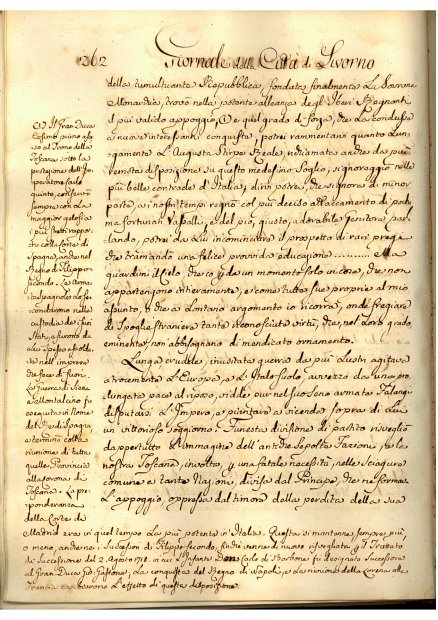 362 Giornale della Città di Livorno
della tumultuante Repubblica, fondata finalmente La Sovrana
Monarchia, trovò nella potente alleanza degl'Iberi Regnanti
il più valido appoggio, e quel grado di forza, che La condusse
a nuove interessanti conquiste; potrei rammentare quanto Lun-
gamente L'Augusta Stirpe Reale, rediamata anche da più
remota disposizione su questo medesimo Soglio, signoreggiò nelle
più belle contrade d'Italia; dirò potrei, che signora di minor
parte, a i nostri tempi regnò col più deciso attaccamento di pochi
ma fortunati Vassalli; e del più giusto, adorabile Genitore par-
lando, potrei da Lui incominciare il prospetto di rari pregi
che tramando una felice provvida educazione .......... Ma
guardimi il Cielo, che io per da un momento solo indori, che non
appartengono intieramente, e come tutte sue proprie al mio
assunto, o che a Lontano argomento io ricorra, onde fregiare
di Spoglie straniere tante riconosciute virtù, che, nel Loro grado
eminente, non abbisognano di mendicato ornamento.
Lunga crudele, inusitata guerra da più Lustri agitava
atrocemente L'Europa, e L'Italo Suolo, avvezzo da una pro-
lungata pace al riposo, vidde pur nel suo seno armate Falangi
disputarsi L'Impero, e piantare a vicenda sopra di Lui
un vittorioso soggiorno. Funesta divisione di partito risvegliò
dappertutto L'immagine dell'antiche sepolte Fazioni, e la
nostra Toscana, involta, per una fatale necessità, nelle sciagure
comune a tante Nazioni, divisa dal Principe, che ne formava
L'appoggio, oppressa dal timore della perdita della sua
(1) Il Gran Duca
Cosimo primo alzato
al Trono della
Toscana sotto la
protezione dell'Im-
peratore Carlo
quinto, conservò
sempre con la
maggior gelosia
i più stretti rappor-
ti colla Corte di
Spagna, anche nel
Regno di Filippo
secondo. Le Arma-
te Spagnole lo se-
condarono nella
custodia dei suoi
Stati, a favore de
Lui spesso abbel-
le nell'imprese
diresse di fuori.
La guerra di Siena
e Montalcino fu
eseguita in Nome
del Re di Spagna
e terminò colla
riunione di tutte
quelle Provincie
alla Corona di
Toscana. La pre-
ponderanza
della Corte di
Madrid era in quel tempo La più potente in Italia. Questa si mantenne sempre, più,
o meno, anche nei Successori di Filippo secondo, finché venne di nuovo risvegliata per il Trattato
di Successione del 2. Agosto 1718. in cui l'Infante Don Carlo di Borbone fu designato Successore
al Gran Duca Gio: Gastone. La conquista del Regno di Napoli, e la riunione della Lorena alla
Francia cambiarono L'effetto di questa disposizione.